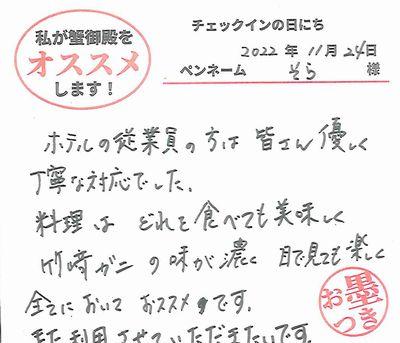 私が蟹御殿を
オススメ
します!
チェックインの日にち
2022年 11月 24日
ペンネーム そら 様
ホテルの従業員の方は 皆さん 優しく
丁寧な対応でした。
料理は どれを食べても美味しく
竹崎ガニの味が濃く 目で見ても楽しく
全てにおいて おススメです。
また利用させていただきたいです。
お墨つき